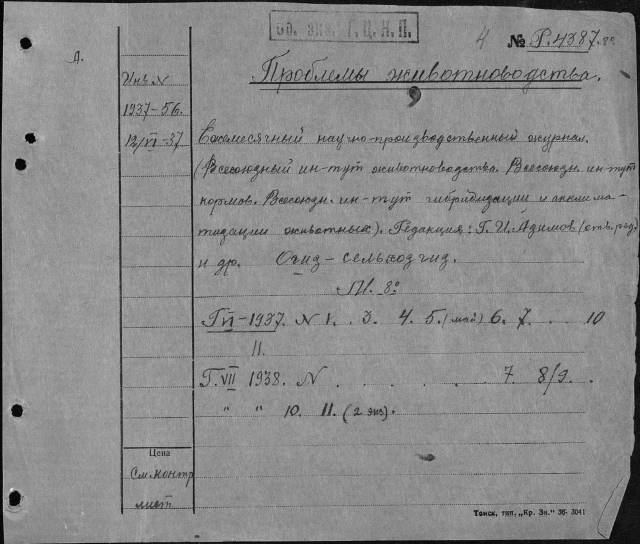 Об. экз. Г. Ц. К. П.
4 № Р.4387.
Д.
Проблемы животноводства.
Инв. N
1937-56.
12/VI-37
Ежемесячный научно-производственный журнал.
(Всесоюзный ин-тут животноводства. Всесоюзн. ин-тут
кормов. Всесоюзн. ин-тут гибридизации и акклима-
тизации животных). Редакция: Г. И. Азимов (отв. ред.)
и др. Огиз-сельхозгиз.
М. 8°
Г. VI-1937. N 1. . 3. 4. 5. (май) 6. 7. . . 10
11.
Г. VII 1938. N . . . . . . 7. 8/9. .
" " 10. 11. (2 экз).
Цена
См. контр
лист
Томск, тип. „Кр. Зн." 36- 3041